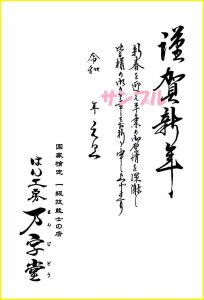 謹賀新年
新春を迎え平素の御愛情を深謝し
皆様の御多幸をお祈り申し上げます
令和　年元旦
サンプル
国家検定 一級技能士の店
はんこ工房 万字堂
まんじどう